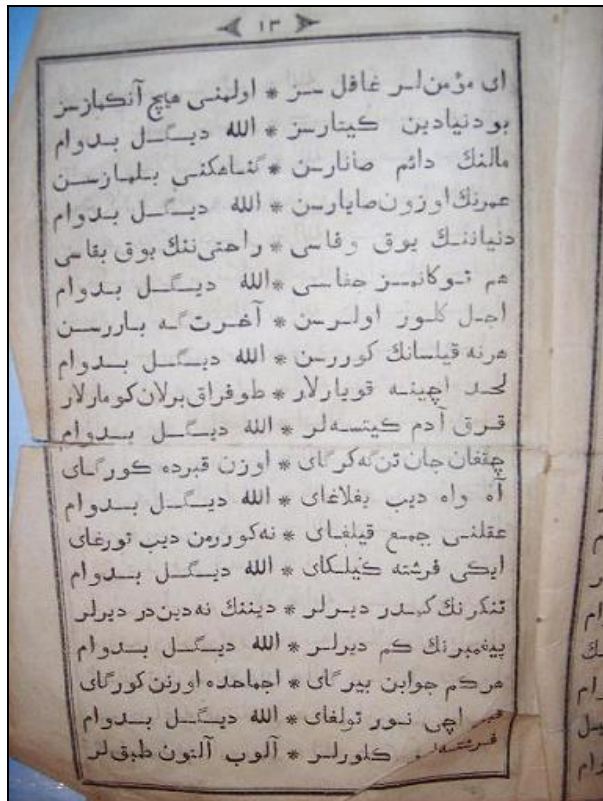 ١٣
ای مؤمن‌لر غافل سز * اولمنی هیچ آنکمازسز
بو دنیادین کیتارسز * الله دیـگـل بـدوام
مالنك دائم صانارسن * گناهکنی بلمازسن
عمرنك اوزون صایارسن * الله دیـگـل بـدوام
دنیاننك یوق وفاسی * راحتی‌ننك یوق بقاسی
هم توکانمز جفاسی * الله دیـگـل بـدوام
اجل کلور اولرسن * آخرت‌گه باررسن
هرنه قیلسانك کوررسن * الله دیـگـل بـدوام
لحد اچینه قویارلار * طوفراق برلان کومارلار
قرق آدم کیتسه‌لر * الله دیـگـل بـدوام
چققان جان تن‌گه کرگای * اوزن قبرده کورگای
آه واه دیب یغلاغای * الله دیـگـل بـدوام
عقلنی جمع قیلغای * نه کوررمن دیب تورغای
ایکی فرشته کیلکای * الله دیـگـل بـدوام
تنکرنك کمدر دیرلر * دیننك نه‌دین‌در دیرلر
پیغمبرنك کم دیرلر * الله دیـگـل بـدوام
هرکم جوابن بیرگای * اجماحده اورنن کورگای
قبر اچی نور تولغای * الله دیـگـل بـدوام
فرشته‌لر کلورلر * آلوب آلتون طبق‌لر